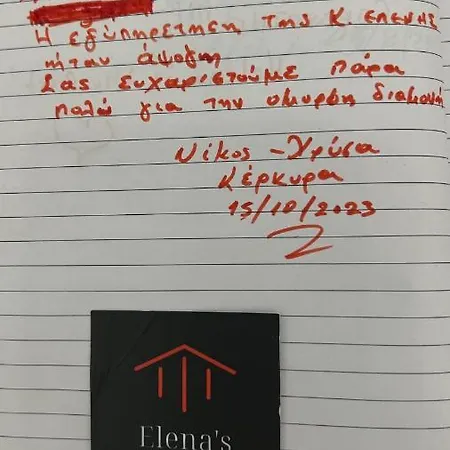 Η εξυπηρετηση της κ. ελενης
ήταν άψογη
Σας ευχαριστούμε πάρα
πολύ για την όμορφη διαμονή
Νίκος - Χρύσα
Κέρκυρα
15/10/2023
Elena's